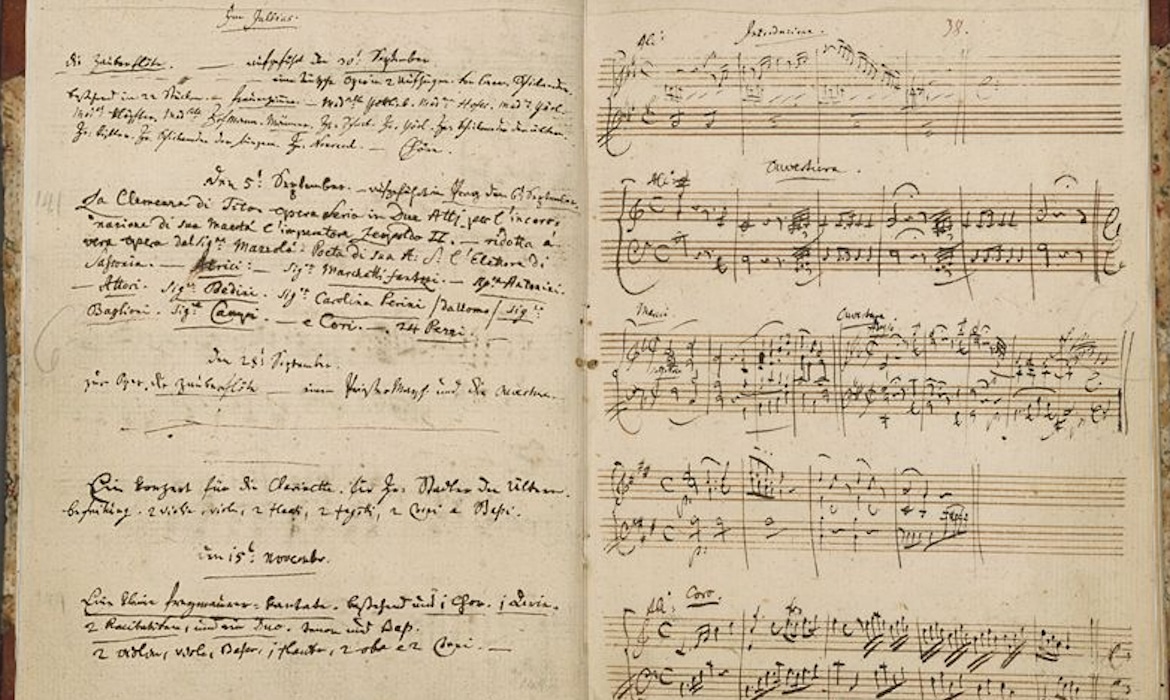 Im Jullius.
die Zauberflöte. — aufgeführt den 30t September.
eine teutsche Oper in 2 Aufzügen. von Eman. Schikaneder.
bestehend in 22 Stücken. — Frauenzimer. — Mad:selle Gottlieb. Mad:me Hofer. Mad:me Görl.
Mad:me Klöpfler. Mad:selle Hofmann. Männer. Hr: Schack. Hr: Görl. Hr: Schikaneder der ältere.
Hr: Kistler. Hr: Schikaneder der Jüngere. Hr: Nouseul. — Chöre.
Den 5t September. — aufgeführt in Prag den 6t September.
La Clemenza di Tito. opera Seria in Due Atti. per l'incoro=
nazione di sua maestà l'imperatore Leopoldo II. — ridotta á
vera opera dal Sigre Mazzolá. Poeta di sua A: S: l'Elettore di
Sassonia. — Atrici: — Sigra Marchetti fantozi. — Sigra Antonini.
— Attori. Sigre Bedini. Sigra Carolina Perini /da uomo/ Sigre
Baglioni. Sigre Campi. — e Cori. — 24 Pezzi.
Den 28t September.
zur Oper. die Zauberflöte — einen Priestermarsch und die Ouverture.
Ein Konzert für die Clarinette. für Hr: Stadler den Ältern.
begleitung. 2 viol, viole, 2 flauti, 2 fagotti, 2 Corni e Baßi.
den 15t Novembr.
Eine kleine freymaurer=kantate. bestehend aus 1 Chor. 1 Arie.
2 Recitativen, und ein Duo. Tenor und Baß.
2 violini, viola, Baßo, 1 flauto, 2 oboe e 2 Corni. —
38.
All:o Introduzione.
Ouverture.
All:o
Marcia. Ouverture
Adagio
All:o Coro.